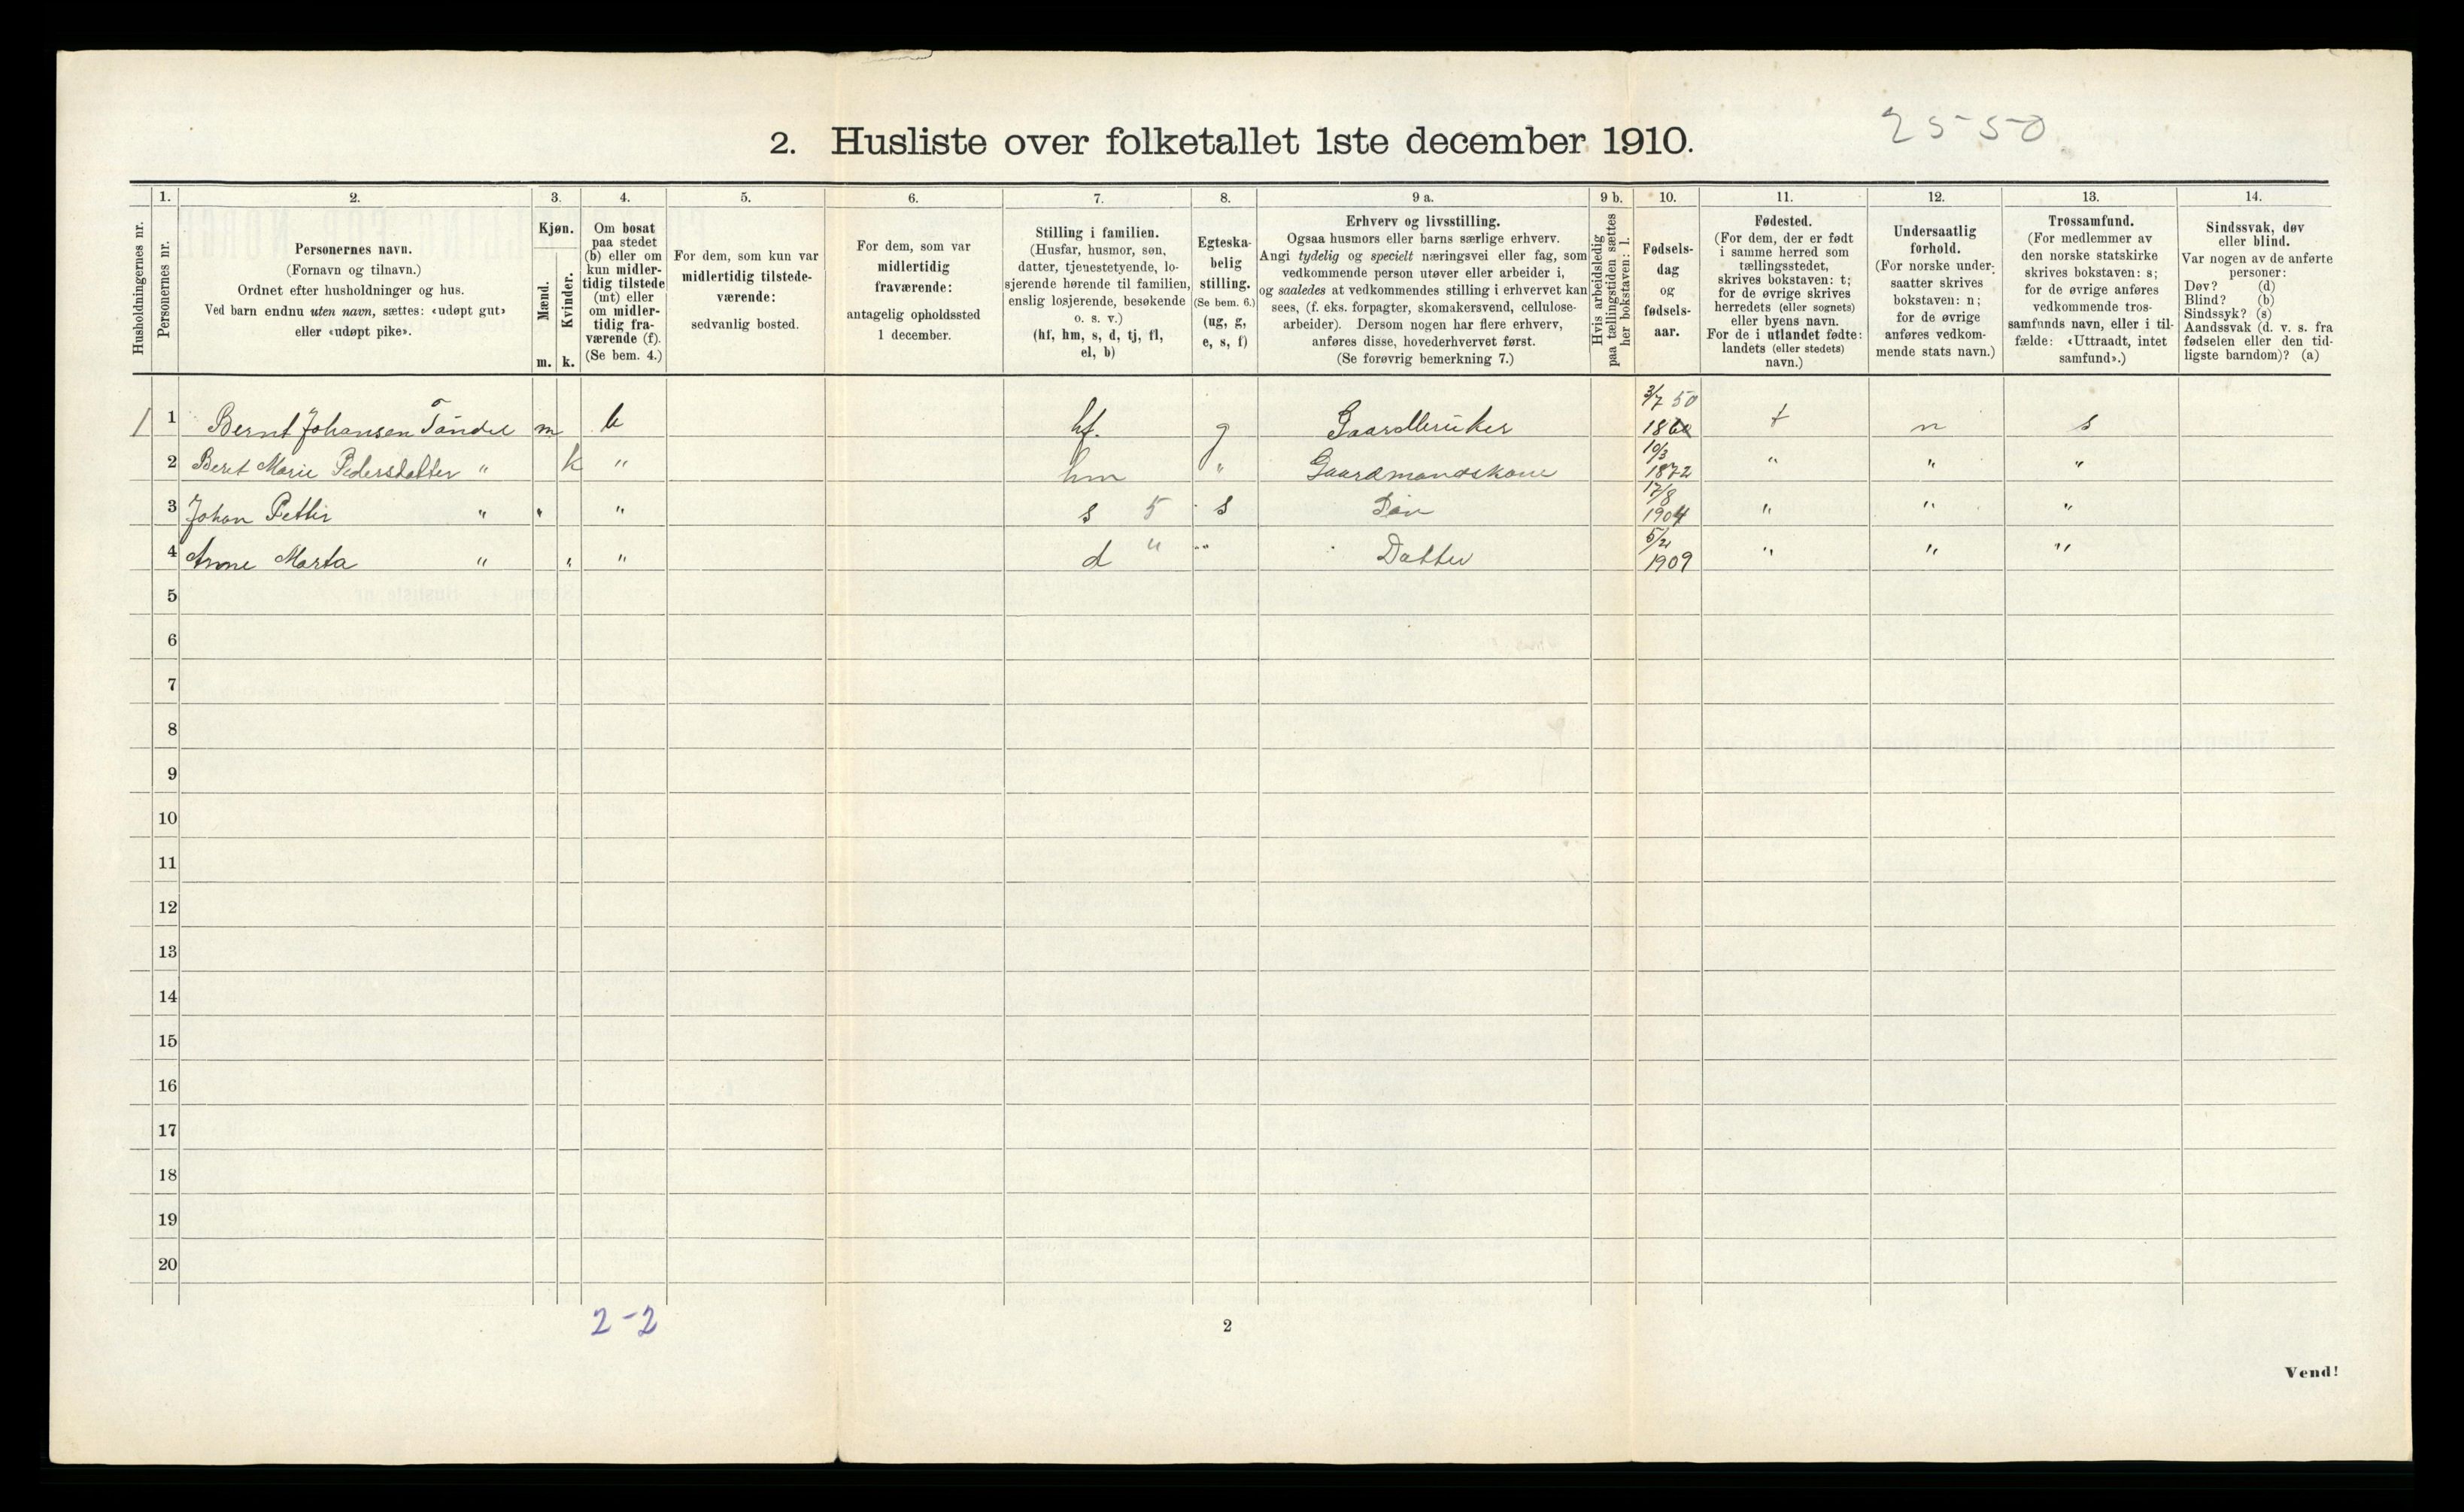 25-50
2. Husliste over folketallet 1ste december 1910.
1. 2. 3. 4. 5. 6. 7. 8. 9 a. 9 b. 10. 11. 12. 13. 14.
Husholdningernes nr.
Personernes nr.
Personernes navn.
(Fornavn og tilnavn.)
Ordnet efter husholdninger og hus.
Ved barn endnu uten navn, sættes: «udøpt gut»
eller «udøpt pike».
Kjøn.
Mænd.
Kvinder.
m. k.
Om bosat
paa stedet
(b) eller om
kun midler-
tidig tilstede
(mt) eller
om midler-
tidig fra-
værende (f).
(Se bem. 4.)
For dem, som kun var
midlertidig tilstede-
værende:
sedvanlig bosted.
For dem, som var
midlertidig
fraværende:
antagelig opholdssted
1 december.
Stilling i familien.
(Husfar, husmor, søn,
datter, tjenestetyende, lo-
sjerende hørende til familien,
enslig losjerende, besøkende
o. s. v.)
(hf, hm, s, d, tj, fl,
el, b)
Egteska-
belig
stilling.
(Se bem. 6.)
(ug, g,
e, s, f)
Erhverv og livsstilling.
Ogsaa husmors eller barns særlige erhverv.
Angi tydelig og specielt næringsvei eller fag, som
vedkommende person utøver eller arbeider i,
og saaledes at vedkommendes stilling i erhvervet kan
sees, (f. eks. forpagter, skomakersvend, cellulose-
arbeider). Dersom nogen har flere erhverv,
anføres disse, hovederhvervet først.
(Se forøvrig bemerkning 7.)
Hvis arbeidsledig
paa tællingstiden sættes
her bokstaven: l.
Fødsels-
dag
og
fødsels-
aar.
Fødested.
(For dem, der er født
i samme herred som
tællingsstedet,
skrives bokstaven: t;
for de øvrige skrives
herredets (eller sognets)
eller byens navn.
For de i utlandet fødte:
landets (eller stedets)
navn.)
Undersaatlig
forhold.
(For norske under-
saatter skrives
bokstaven: n;
for de øvrige
anføres vedkom-
mende stats navn.)
Trossamfund.
(For medlemmer av
den norske statskirke
skrives bokstaven: s;
for de øvrige anføres
vedkommende tros-
samfunds navn, eller i til-
fælde: «Uttraadt, intet
samfund».)
Sindssvak, døv
eller blind.
Var nogen av de anførte
personer:
Døv? (d)
Blind? (b)
Sindssyk? (s)
Aandssvak (d. v. s. fra
fødselen eller den tid-
ligste barndom)? (a)
3/7 50
1 1 Bernt Johansen Tøndel m b hf. g Gaardbruker 1860 t n s
10/3
2 Beret Marie Pedersdatter " k " hm " Gaardmandskone 1872 " " "
17/8
3 Johan Petter " " " s 5 s Søn 1904 " " "
5/2
4 Anne Marta " " " d " " Datter 1909 " " "
5
6
7
8
9
10
11
12
13
14
15
16
17
18
19
20
2-2
2
Vend!